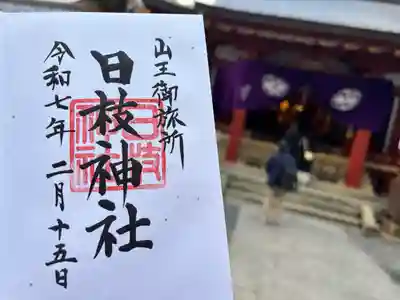 山王御旅所
日枝神社
令和七年 二月十五日
日枝神社